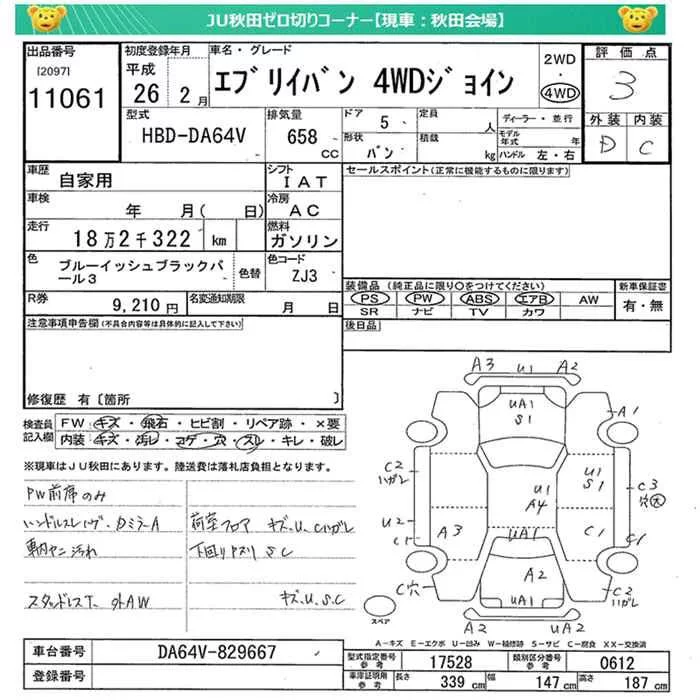 JU秋田ゼロ切りコーナー[現車：秋田会場]
出品番号 初度登録年月 車名・グレード 評価点
[2097] 平成 エブリイバン 4WDジョイン 2WD・4WD 3
11061 26 2月
型式 排気量 ドア 5 定員 人 ディーラー・並行 外装 内装
HBD-DA64V 658 CC 形状 バン 積載 kg モデル年式 年 D C
ハンドル 左・右
車歴 自家用 シフト IAT セールスポイント(正常に機能するものに限ります)
車検 年 月( 日) 冷房 AC
走行 18万2千322 km 燃料 ガソリン
色 ブルーイッシュブラックパール3 色替 色コード ZJ3
装備品(純正品に限り○をつけてください) 新車保証書
R券 9,210円 名変通知期限 月 日 PS PW ABS エアB AW 有・無
SR ナビ TV カワ
注意事項申告欄(不具合内容等は具体的に記入して下さい) 後日品
修復歴 有〔箇所 〕
検査員記入欄 FW キズ・飛石・ヒビ割・リペア跡・×要
内装 キズ・汚レ・コゲ・穴・スレ・キレ・破レ
※現車はJU秋田にあります。陸送費は落札店負担となります。
PW前席のみ
ハンドルスレ
荷室フロア キズ、U、Cハガレ
車内ヤニ汚れ 下回りサビ SC
スタッドレスT、外AW キズ、U、S、C
A3 U1 A2
UA1
S1
A1
C2
ハガレ
U1
S1
U1
A4
C3
穴大
U2
C1
A3
C1
C1
UA1
C穴
A2
C2
ハガレ
スペア
A2 UA1 U2
A－キズ E－エクボ U－凹み W－補修跡 S－サビ C－腐食 XX－交換済
車台番号 DA64V-829667 型式指定番号 参考 17528 類別区分番号 参考 0612
登録番号 車庫証明用 参考 長さ 339 cm 幅 147 cm 高さ 187 cm